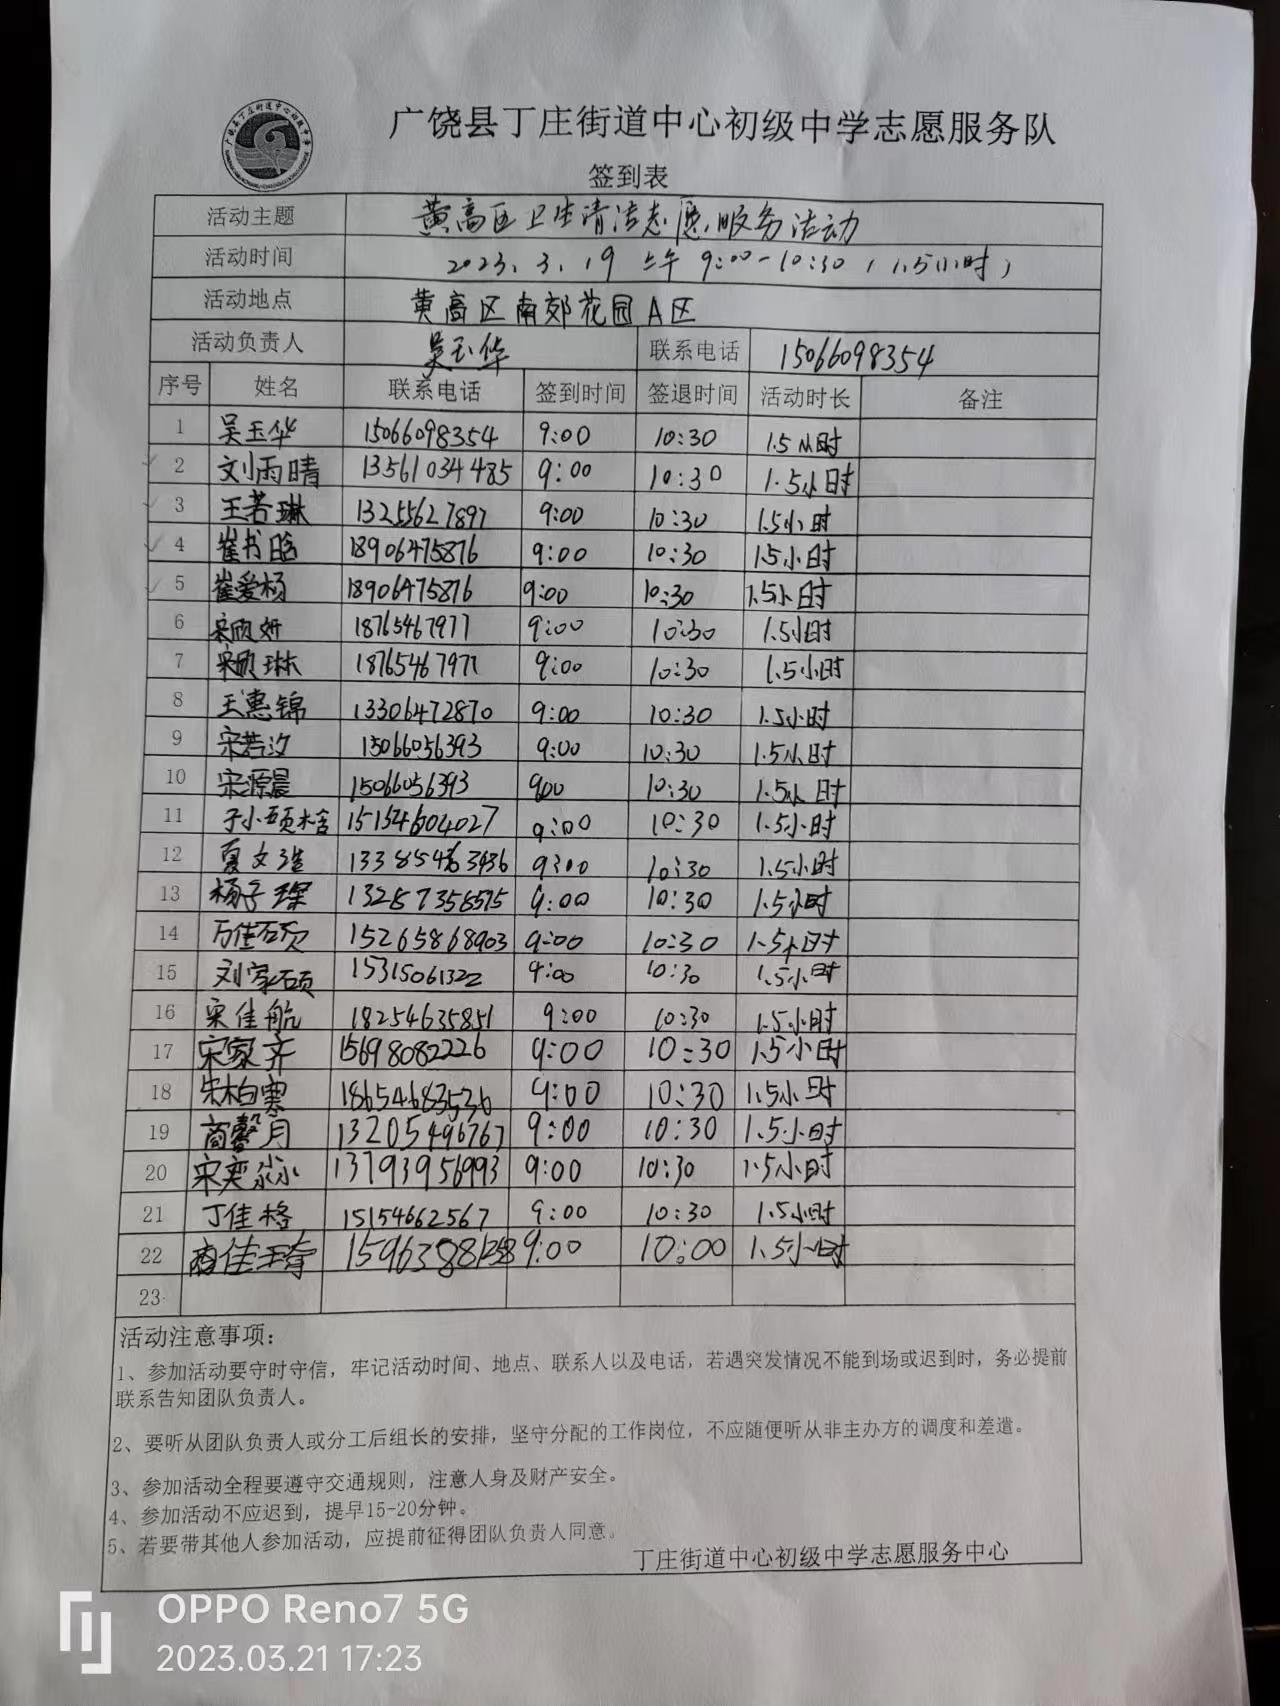 广饶县丁庄街道中心初级中学志愿服务队
签到表
活动主题 黄高区卫生清洁志愿服务活动
活动时间 2023.3.19 上午 9:00-10:30（1.5小时）
活动地点 黄高区南郊花园A区
活动负责人 吴玉华 联系电话 15066098354
序号 姓名 联系电话 签到时间 签退时间 活动时长 备注
1 吴玉华 15066098354 9:00 10:30 1.5小时
2 刘雨晴 13561034485 9:00 10:30 1.5小时
3 王若琳 13255627897 9:00 10:30 1.5小时
4 崔书晗 18906475876 9:00 10:30 1.5小时
5 崔爱杨 18906475876 9:00 10:30 1.5小时
6 宋欣妍 18765467977 9:00 10:30 1.5小时
7 宋欣琳 18765467977 9:00 10:30 1.5小时
8 王惠锦 13306472870 9:00 10:30 1.5小时
9 宋若汐 15066056393 9:00 10:30 1.5小时
10 宋源晨 15066056393 9:00 10:30 1.5小时
11 15154604027 9:00 10:30 1.5小时
12 夏文 9:00 10:30 1.5小时
13 杨子琛 13287358575 9:00 10:30 1.5小时
14 万佳硕 15265868903 9:00 10:30 1.5小时
15 刘家硕 15315061322 9:00 10:30 1.5小时
16 宋佳航 18254635851 9:00 10:30 1.5小时
17 宋家齐 15698082226 9:00 10:30 1.5小时
18 朱柏寒 18654683536 9:00 10:30 1.5小时
19 商馨月 13205496767 9:00 10:30 1.5小时
20 宋奕淼 13793956993 9:00 10:30 1.5小时
21 丁佳格 15154662567 9:00 10:30 1.5小时
22 商佳琦 9:00 10:00 1.5小时
23
活动注意事项：
1、参加活动要守时守信，牢记活动时间、地点、联系人以及电话，若遇突发情况不能到场或迟到时，务必提前
联系告知团队负责人。
2、要听从团队负责人或分工后组长的安排，坚守分配的工作岗位，不应随便听从非主办方的调度和差遣。
3、参加活动全程要遵守交通规则，注意人身及财产安全。
4、参加活动不应迟到，提早15-20分钟。
5、若要带其他人参加活动，应提前征得团队负责人同意。
丁庄街道中心初级中学志愿服务中心
OPPO Reno7 5G
2023.03.21 17:23